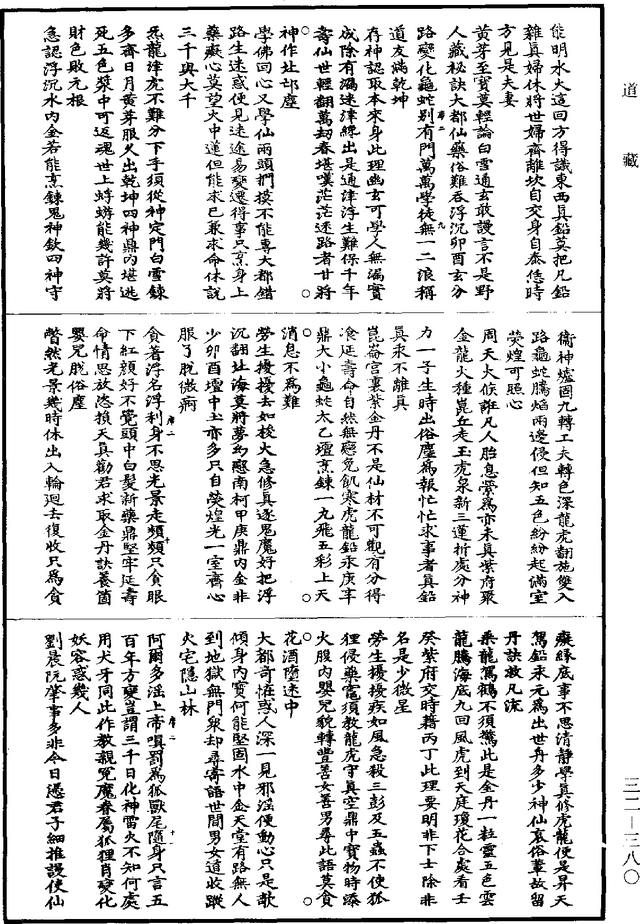 道藏
能明水火這回方得識東西真鉛莫把凡鉛
雜真婦休將世婦齊離坎自交身自泰恁時
方見是夫妻
黃芽至寶莫輕論白雪通玄敢謾言不是野
人藏祕訣大都仙藥俗難吞浮沉卯酉玄分
路變化龜蛇別有門萬萬學徒無一二浪稱
道友滿乾坤
存神認取本來身此理幽玄可學人無漏實
成除有漏迷津纔出是通津浮生難保千年
壽仙世輕翻萬劫春堪嘆茫茫迷路者甘將
神作北邙塵
學佛回心又學仙兩頭捫摸不能專大都錯
路生迷惑便見迷途易變遷得事只烹身上
藥癡心莫望火中蓮但能求已兼求命休說
三千與大千
炁龍津虎不難分下手須從神定門白雪鍊
多齋日月黃芽服久出乾坤四神鼎內堪逃
死五色漿中可返魂世上蜉蝣能幾許莫將
財色敗元根
急認浮沉水內金若能烹鍊鬼神欽四神守
衞神爐固九轉工夫轉色深龍虎翻施雙入
路龜蛇騰焰兩邊侵但知五色紛紛起滿室
熒煌可照心
周天火候誑凡人胎息縈為亦未真紫府聚
金龍火種崑丘走玉虎泉新三運折處分神
力一子生時出俗塵為報忙忙求事者真鉛
真汞不離真
崑崙宮裏紫金丹不是仙材不可觀有分得
飡延壽命自然無慼免飢寒虎龍鉛汞庚辛
鼎大小龜蛇太乙壇烹鍊一丸飛五彩上天
消息不為難
勞生擾擾去如梭火急修真逐鬼魔好把浮
沉翻北海莫將夢幻慼南柯甲庚鼎內金非
少卯酉壇中土亦多只自熒煌光一室齊心
服了脫微痾
貪著浮名浮利身不思光景走頻頻只貪眼
下紅顏好不覺頭中白髮新藥鼎堅牢延壽
命情思放恣損天真勸君求取金丹訣養箇
嬰兒脫俗塵
瞥然光景幾時休出入輪迴去復收只為貪
癡緣底事不思清靜學真修虎龍便是昇天
駕鉛汞元為出世舟多少神仙哀俗輩故留
丹訣救凡流
乘龍駕鶴不須驚此是金丹一粒靈五色雲
龍騰海底九回風虎到天庭瓊花合處看壬
癸紫府交時藉丙丁此理要明非下士除非
名是少微星
勞生擾擾疾如風急殺三彭及五蟲不使狐
狸侵藥竈須教龍虎守真空鼎中寶物時蹂
火腹內嬰兒貌轉豐善女善男尋此語莫貪
花酒墮迷中
大都奇恠惑人深一見邪淫便動心只是欺
傾身內寶何能堅固水中金天堂有路無人
到地獄無門衆却尋寄語世間男女道收蹤
火宅隱山林
阿爾多淫上帝嗔罰為狐獸尾隨身只言五
百年方變豈謂三千日化神雷火不知何處
用犬牙同此作教親冤魔眷屬狐狸肖變化
妖容惑幾人
劉晨阮肇事多非今日憑君子細推謾使仙
三二―三八〇